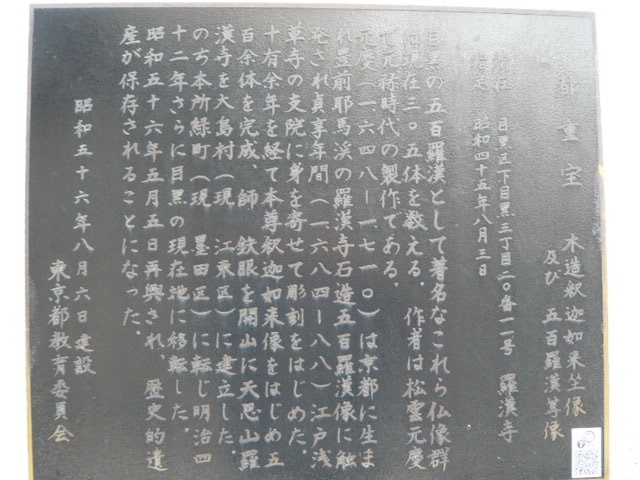 都重宝 木造釈迦如来坐像
及び 五百羅漢等像
所在 目黒区下目黒三丁目二〇番一一号 羅漢寺
指定 昭和四十五年八月三日
目黒の五百羅漢として著名なこれら仏像群
は現在三〇五体を数える。作者は松雲元慶
で元禄時代の製作である。
元慶(一六四八ー一七一〇)は京都に生ま
れ豊前耶馬渓の羅漢寺石造五百羅漢像に触
発され貞享年間(一六八四ー八八)江戸浅
草寺の支院に身を寄せて彫刻をはじめた。
十有余年を経て本尊釈迦如来像をはじめ五
百余体を完成、師 鉄眼を開山に天恩山羅
漢寺を大島村(現 江東区)に建立した。
のち本所緑町(現 墨田区)に転じ明治四
十二年さらに目黒の現在地に移転した。
昭和五十六年五月五日再興され、歴史的遺
産が保存されることになった。
昭和五十六年八月六日建設
東京都教育委員会